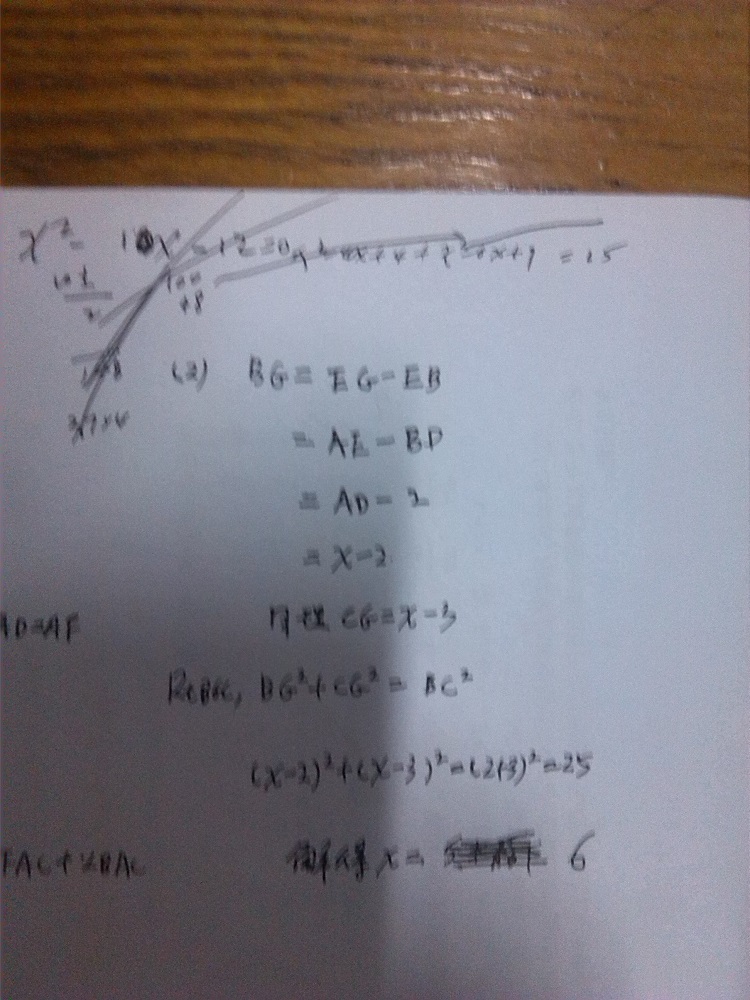 x² - 10x - 12 = 0
= 25
100
+8
(2) BG = EG - EB
= AE - BD
= AD - 2
= x - 2
AD=AF
同理 CG = x - 3
Rt△BGC, BG² + CG² = BC²
(x-2)² + (x-3)² = (2+3)² = 25
FAC+∠BAC
解得 x = 6